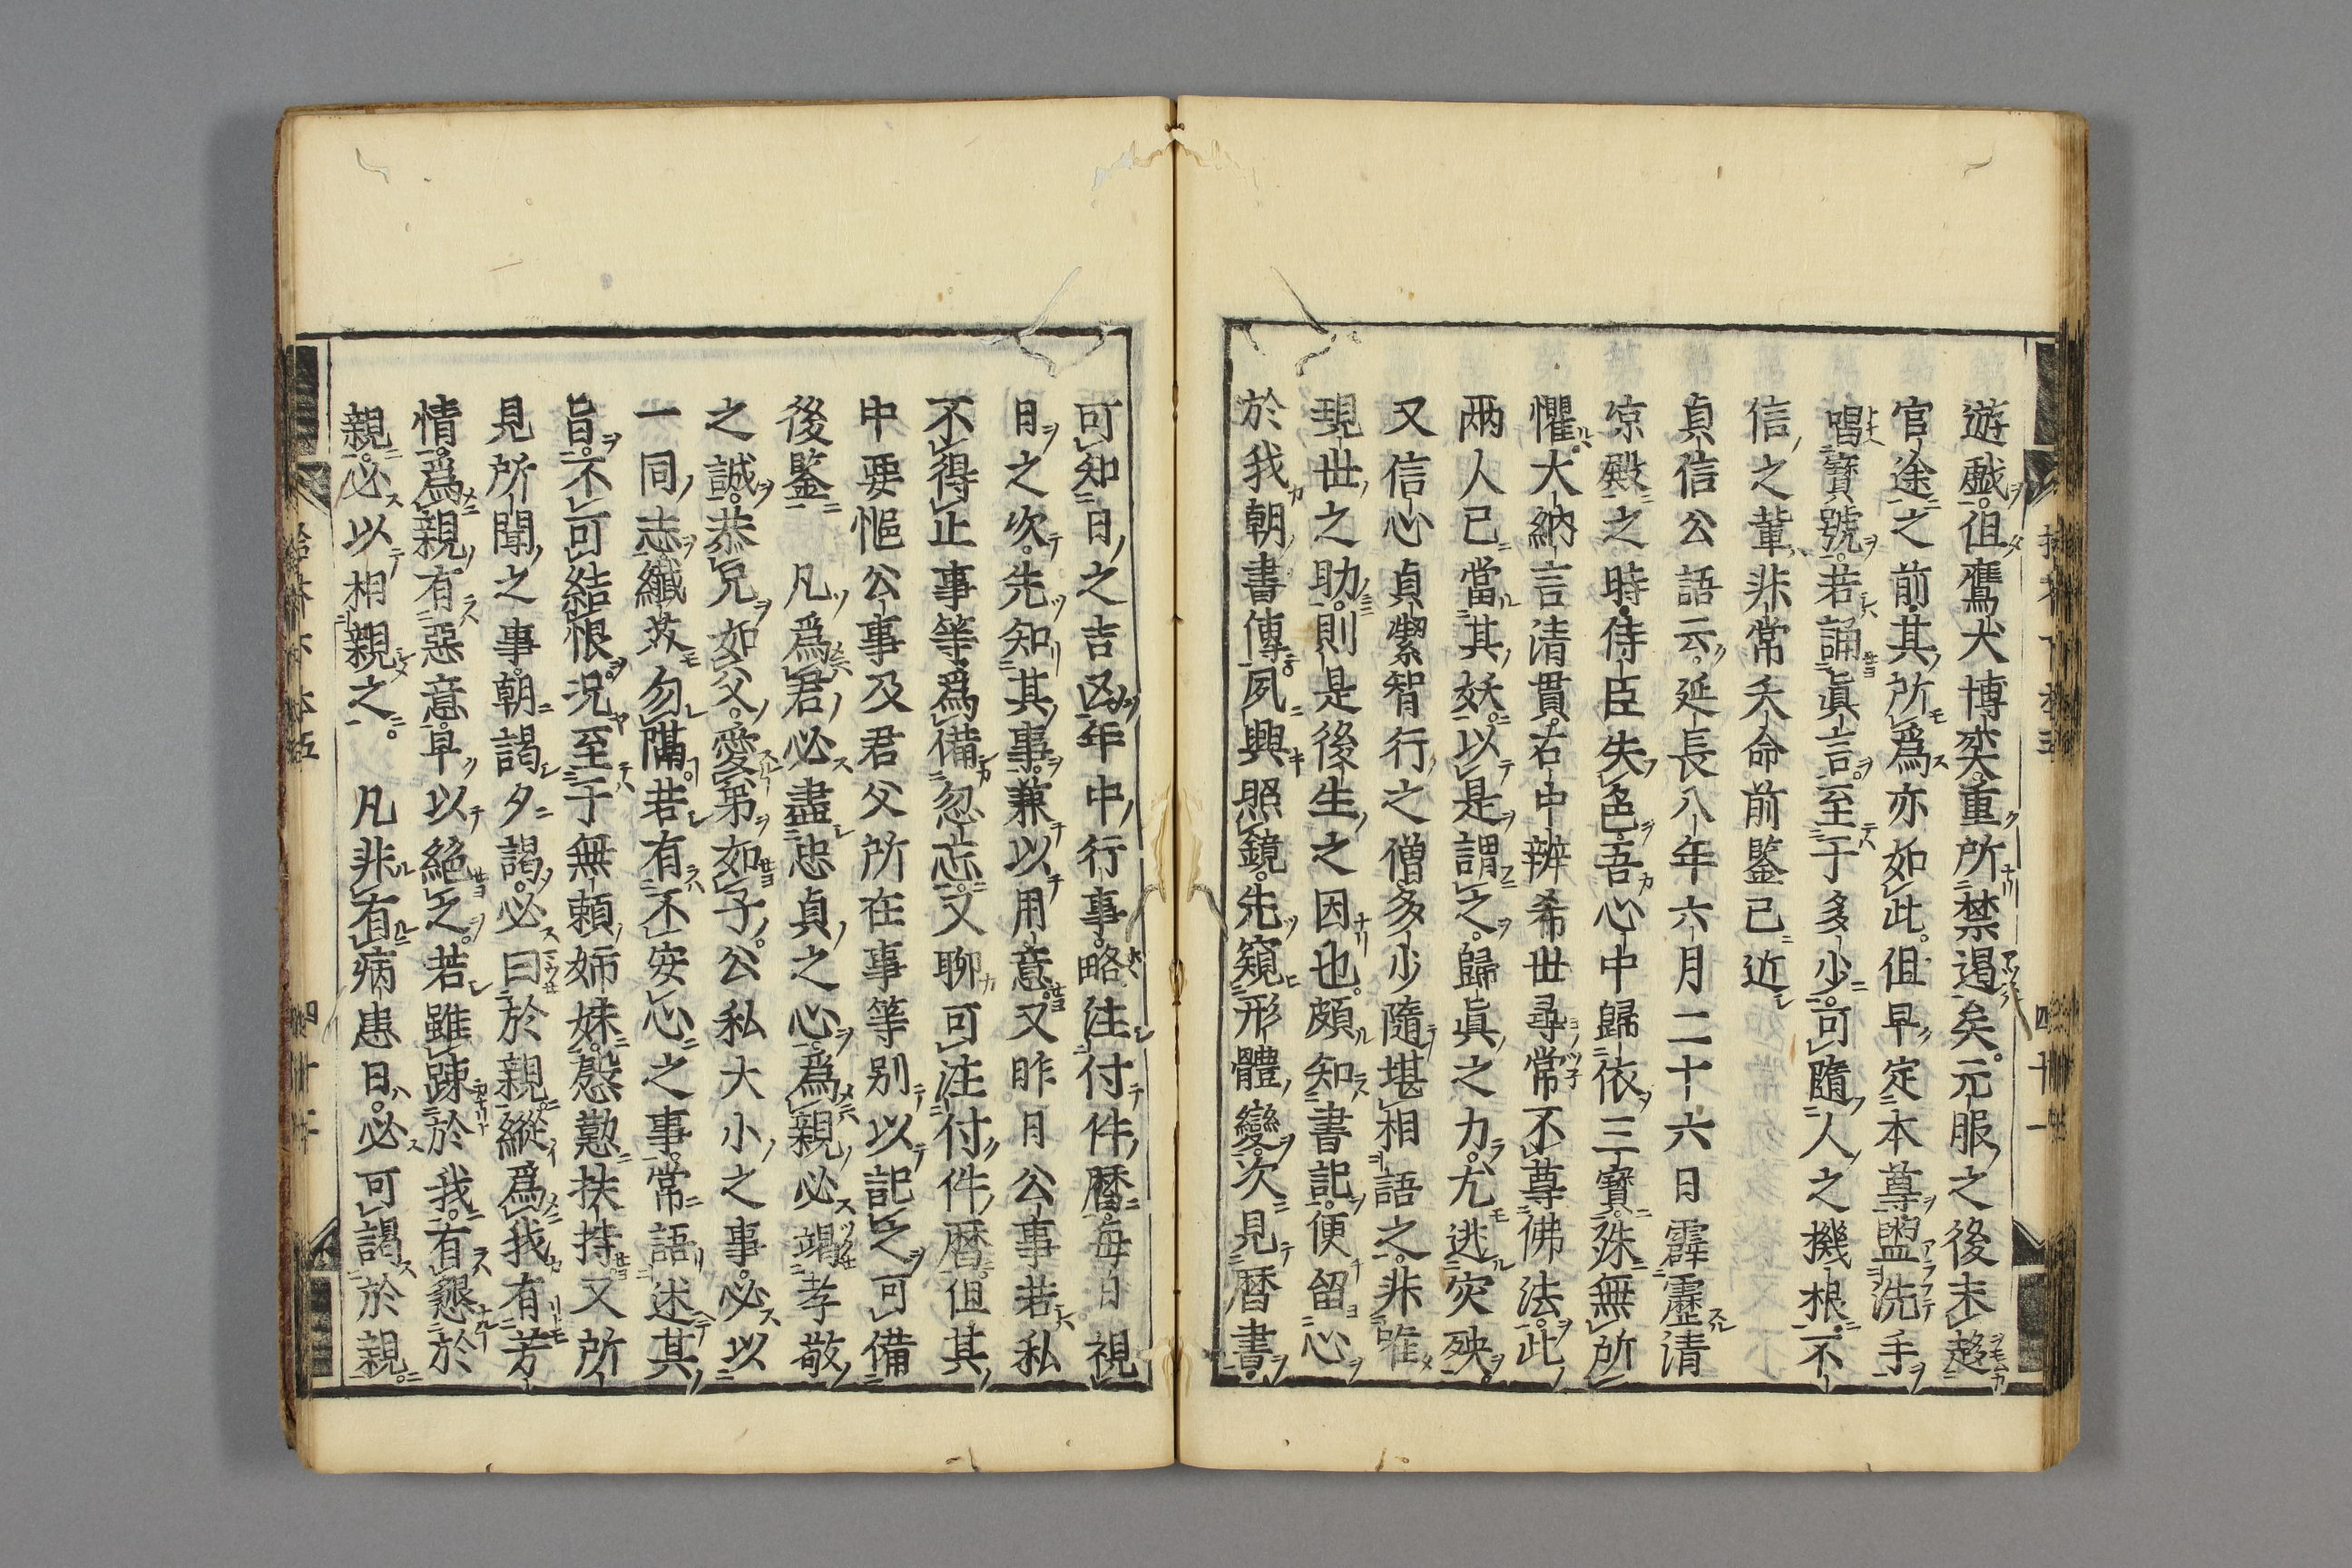 遊戲但鷹犬博奕重所禁遏矣元服之後未趍
官途之前其所爲亦如此但早定本尊盥洗手
唱寶號若誦眞言至于多少可隨人之機根不
信之輩非常夭命前鑒已近
貞信公語云延長八年六月二十六日霹靂清
凉殿之時侍臣失色吾心中歸依三寶殊無所
懼大納言清貫右中辨希世尋常不尊佛法此
兩人已當其妖以是謂之歸眞之力尤逃灾殃
又信心貞潔智行之僧多少隨堪相語之非唯
現世之助則是後生之因也頗知書記便留心
於我朝書傳夙興照鏡先窺形體變次見暦書
可知日之吉凶年中行事略注付件暦毎日視
日之次先知其事兼以用意又昨日公事若私
不得止事等爲備忽忘又聊可注付件暦但其
中要樞公事及君父所在事等别以記之可備
後鑒　凡爲君必盡忠貞之心爲親必竭孝敬
之誠恭兄如父愛弟如子公私大小之事必以
一同志纖芥勿隔若有不安心之事常語述其
旨不可結恨况至于無頼姉妹慇懃扶持又所
見所聞之事朝謁夕謁必曰於親縱爲我有芳
情爲親有惡意早以絶之若雖踈於我有懇於
親必以相親之　凡非有病患日必可謁於親
四十一